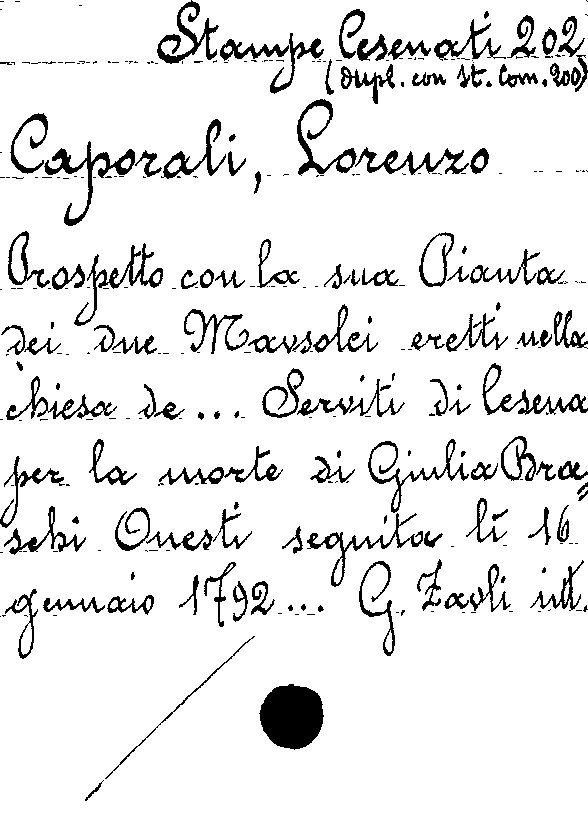 Stampe Cesenati 202
(dupl. con St. Com. 200)
Caporali, Lorenzo
Prospetto con la sua Pianta
dei due Mavsolei eretti nella
chiesa de... Serviti di Cesena
per la morte di Giulia Bra=
schi Onesti seguita lì 16
gennaio 1792... G. Zavli int.